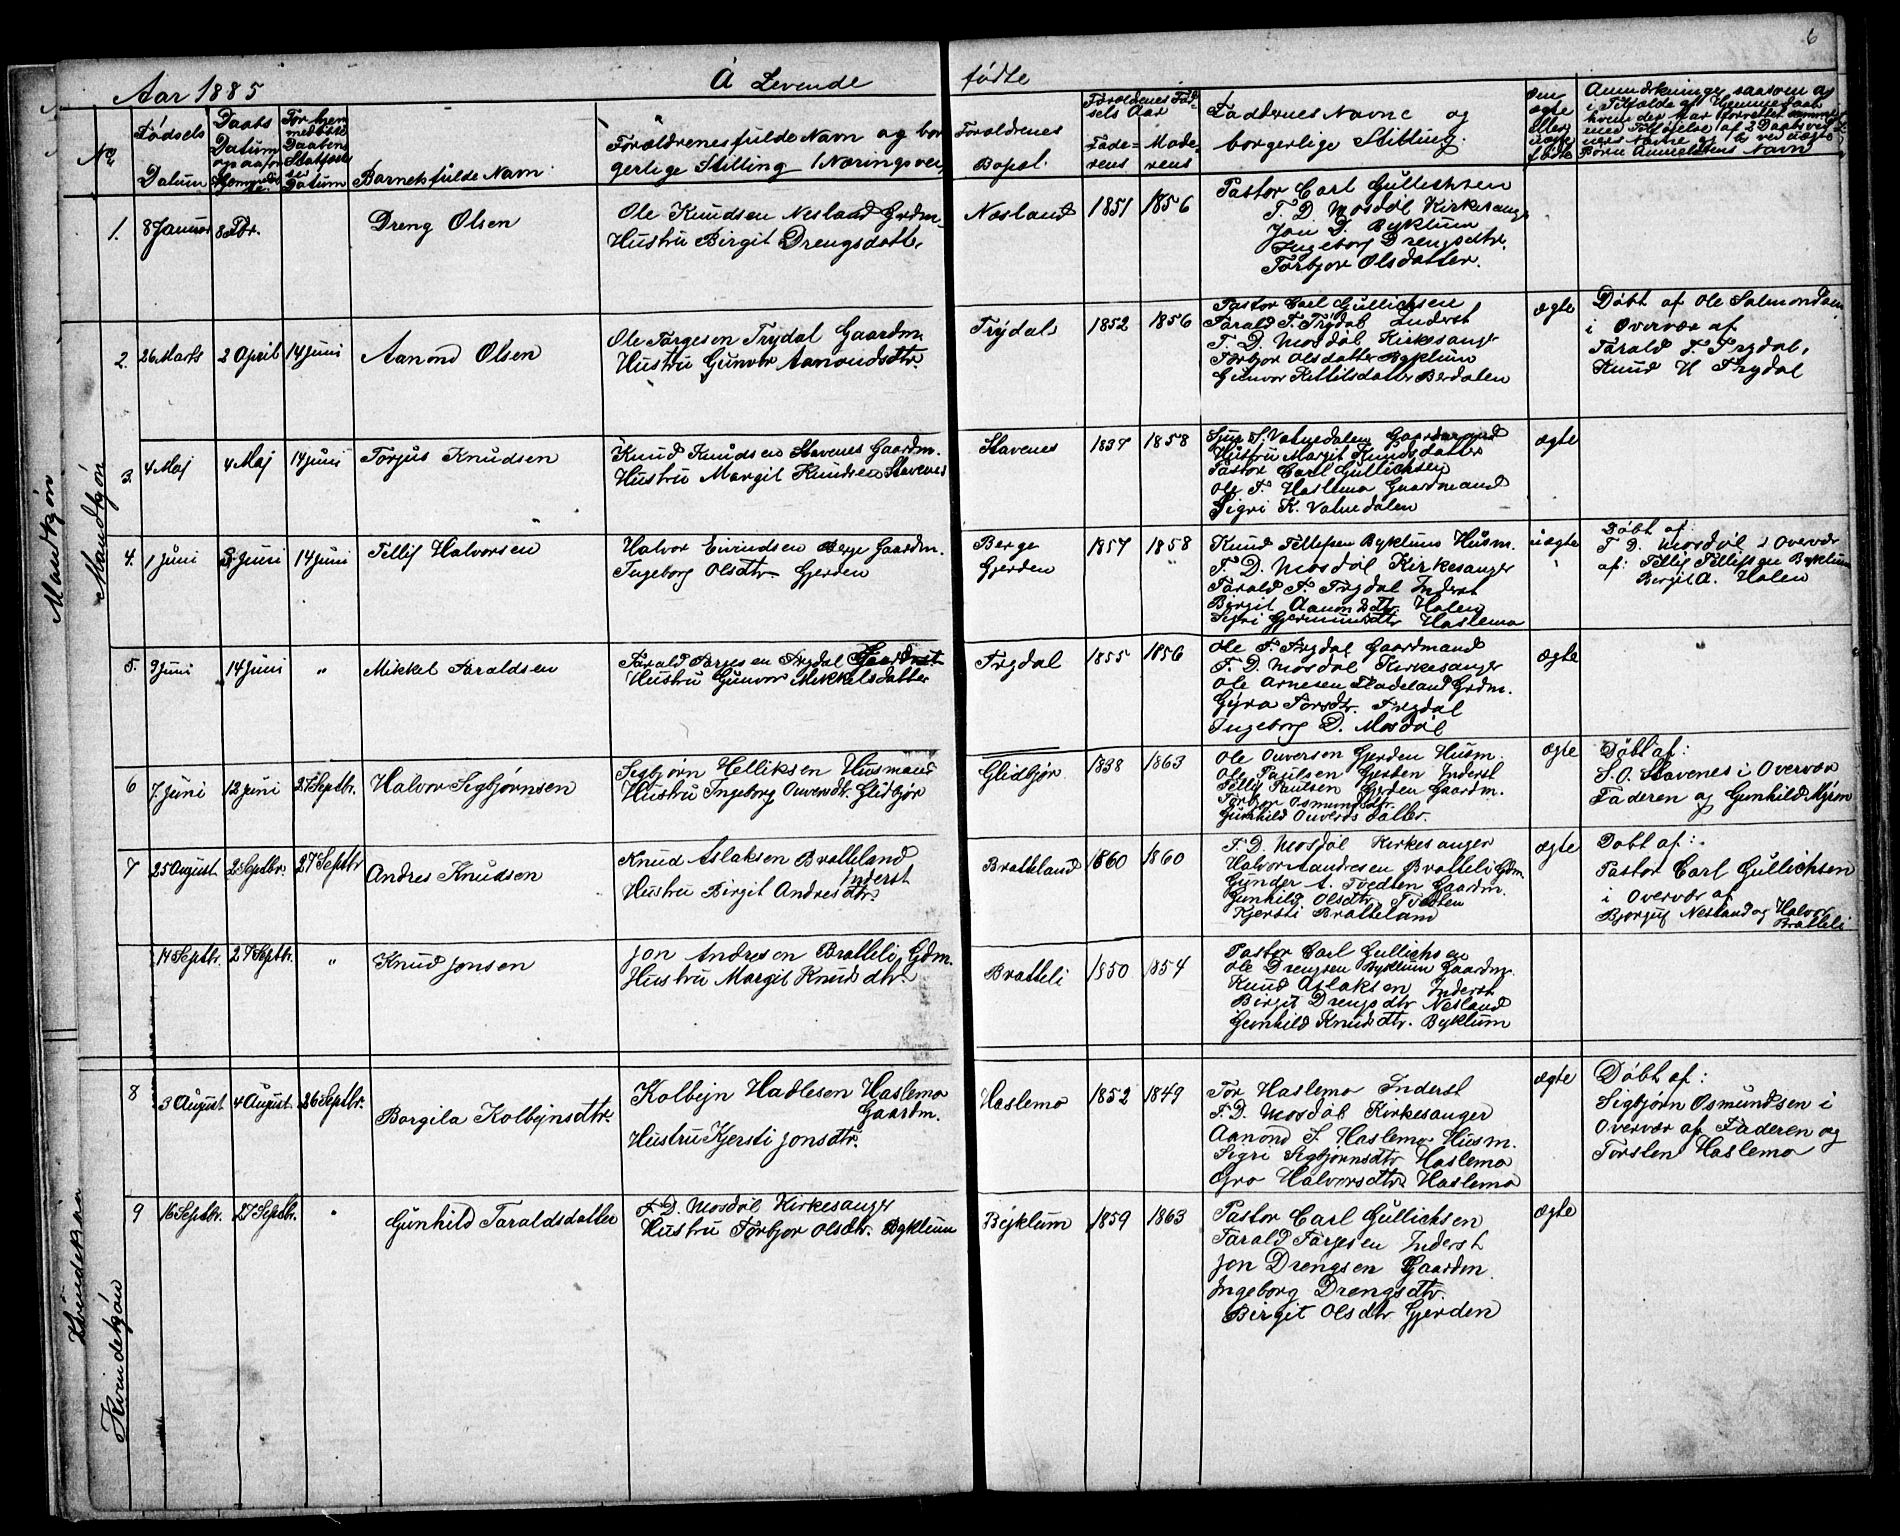 6
Aar 1885
A Levende
fødte
No
Fødsels
Datum
Daabs
Datum
Barnets fulde Navn
Forældrenes fulde Navn og bor
gerlige Stilling (Næringsvei)
Forældrenes
Bopæl.
Forældrenes Fød-
sels Aar
Fade-
rens
Mode-
rens
Faddernes Navne og
borgerlige Stilling.
Om
ægte
eller
uægte
født
Mandkjøn
Mandkjøn
1.
8 Januar
8 Fbr.
Dreng Olsen
Ole Knudsen Nesland Grdm.
Hustru Birgit Drengsdatter
Næsland
1851
1856
Pastor Carl Gullichsen
T. D. Mosdøl Kirkesanger
Jon D. Byklum
Ingeborg Drengsdtr.
Torbjor Olsdatter.
2.
26 Marts
2 April
14 Juni
Aanond Olsen
Ole Torgesen Trydal Gaardm.
Hustru Gunvor Aanondsdtr.
Trydal
1852
1856
Pastor Carl Gullichsen
Tarald T. Trydal Inderst
T. D. Mosdøl Kirkesanger
Torbjor Olsdatter Byklum
Gunvor Kittilsdatter Berdalen
ægte
Døbt af Ole Salmondsen
i Overvær af
Tarald T. Trydal,
Knud H Trydal
3.
4 Maj
4 Maj
14 Juni
Torjus Knudsen
Knud Knudsen Stavenes Gaardm.
Hustru Margit Knudsen Stavenes
Stavenes
1837
1858
Sjur S. Vatnedalen Gaardmand
Hustru Margit Knudsdatter
Pastor Carl Gullichsen
Ole T. Haslemo Gaardmand
Sigri K. Vatnedalen
ægte
4.
1 Juni
2 Juni
14 Juni
Tellif Halvorsen
Halvor Eivindsen Berge Gaardm.
Ingeborg Olsdtr. Gjerden
Berge
Gjerden
1857
1858
Knud Tellefsen Byklum Husm.
T. D. Mosdøl Kirkesanger
Tarald T. Trydal Inderst
Birgit Aanondsdtr. Holen
Sigri Gjermundsdtr Haslemo
uægte
Døbt af:
T. D. Mosdøl i Overvær
af: Tellif Tellefsen Byklum
Bergit A. Holen
5.
9 Juni
14 Juni
"
Mikkel Taraldsen
Tarald Torjesen Trydal
Hustru Gunvor Mikkelsdatter
Trydal
1855
1856
Ole T. Trydal Gaardmand
T. D. Mosdøl Kirkesanger
Ole Arnesen Hadeland Grdm.
Gyro Torsdtr. Trydal
Ingeborg D. Mosdøl
ægte
6
7 Juni
12 Juni
27 Septbr.
Halvor Sigbjørnsen
Sigbjørn Helliksen Husmand
Hustru Ingeborg Ouversdtr. Glidbjør
Glidbjør
1838
1863
Ole Ouversen Gjerden Husm.
Ole Paulsen Gjerden Inderst
Tellif Paulsen Gjerden Gaardm.
Torbjor Osmundsdtr.
Gunhild Ouversdatter.
ægte
Døbt af:
S. O. Stavenes i Overvær
Faderen og Gunhild Myren
7
25 August
2 Septbr.
27 Septbr
Andres Knudsen
Knud Aslaksen Bratteland
Inderst
Hustru Birgit Andresdtr.
Bratteland
1860
1860
T. D. Mosdøl Kirkesanger
Halvor Andresen Bratteli Gdm.
Gunder A. Tvedten Gaardm.
Gunhild Olsdtr. Tvedten
Kjersti Bratteland
ægte
Døbt af:
Pastor Carl Gullichsen
i Overvær af
Bjorguf Nesland og Halvor
Bratteli
14 Septbr.
27 Septbr.
"
Knud Jonsen
Jon Andresen Bratteli Gdm.
Hustru Margit Knudsdtr.
Bratteli
1850
1854
Pastor Carl Gullichsen
Ole Drengsen Byklum Gaardm.
Knud Aslaksen Inderst
Birgit Drengsdtr Nesland
Gunhild Knudsdtr. Byklum
Kvindekjøn
Kvindekjøn
8
3 August
4 August
26 Septbr.
Borgila Kolbejnsdtr.
Kolbejn Hadlesen Haslemo
Gaardm.
Hustru Kjersti Jonsdtr.
Haslemo
1852
1849
Tor Haslemo Inderst
T. D. Mosdøl Kirkesanger
Aanond S. Haslemo Husm.
Sigri Sigbjørnsdtr Haslemo
Gro Halvorsdtr Haslemo
ægte
Døbt af:
Sigbjørn Osmundsen i
Overvær af Faderen og
Torsten Haslemo
9
16 Septbr.
27 Septbr.
"
Gunhild Taraldsdatter
T. D. Mosdøl Kirkesanger
Hustru Torbjor Olsdtr. Byklum
Byklum
1859
1863
Pastor Carl Gullichsen
Tarald Torjesen Inderst
Jon Drengsen Gaardm.
Ingeborg Drengsdtr.
Birgit Olsdtr Gjerden
ægte